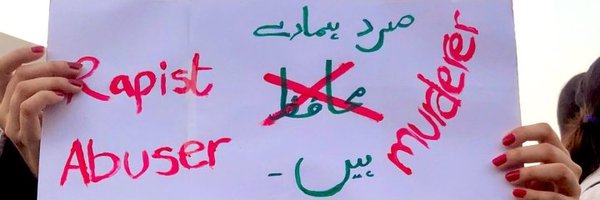 Rapist
Abuser
مرد ہمارے
محافظ
ہیں۔
murderer